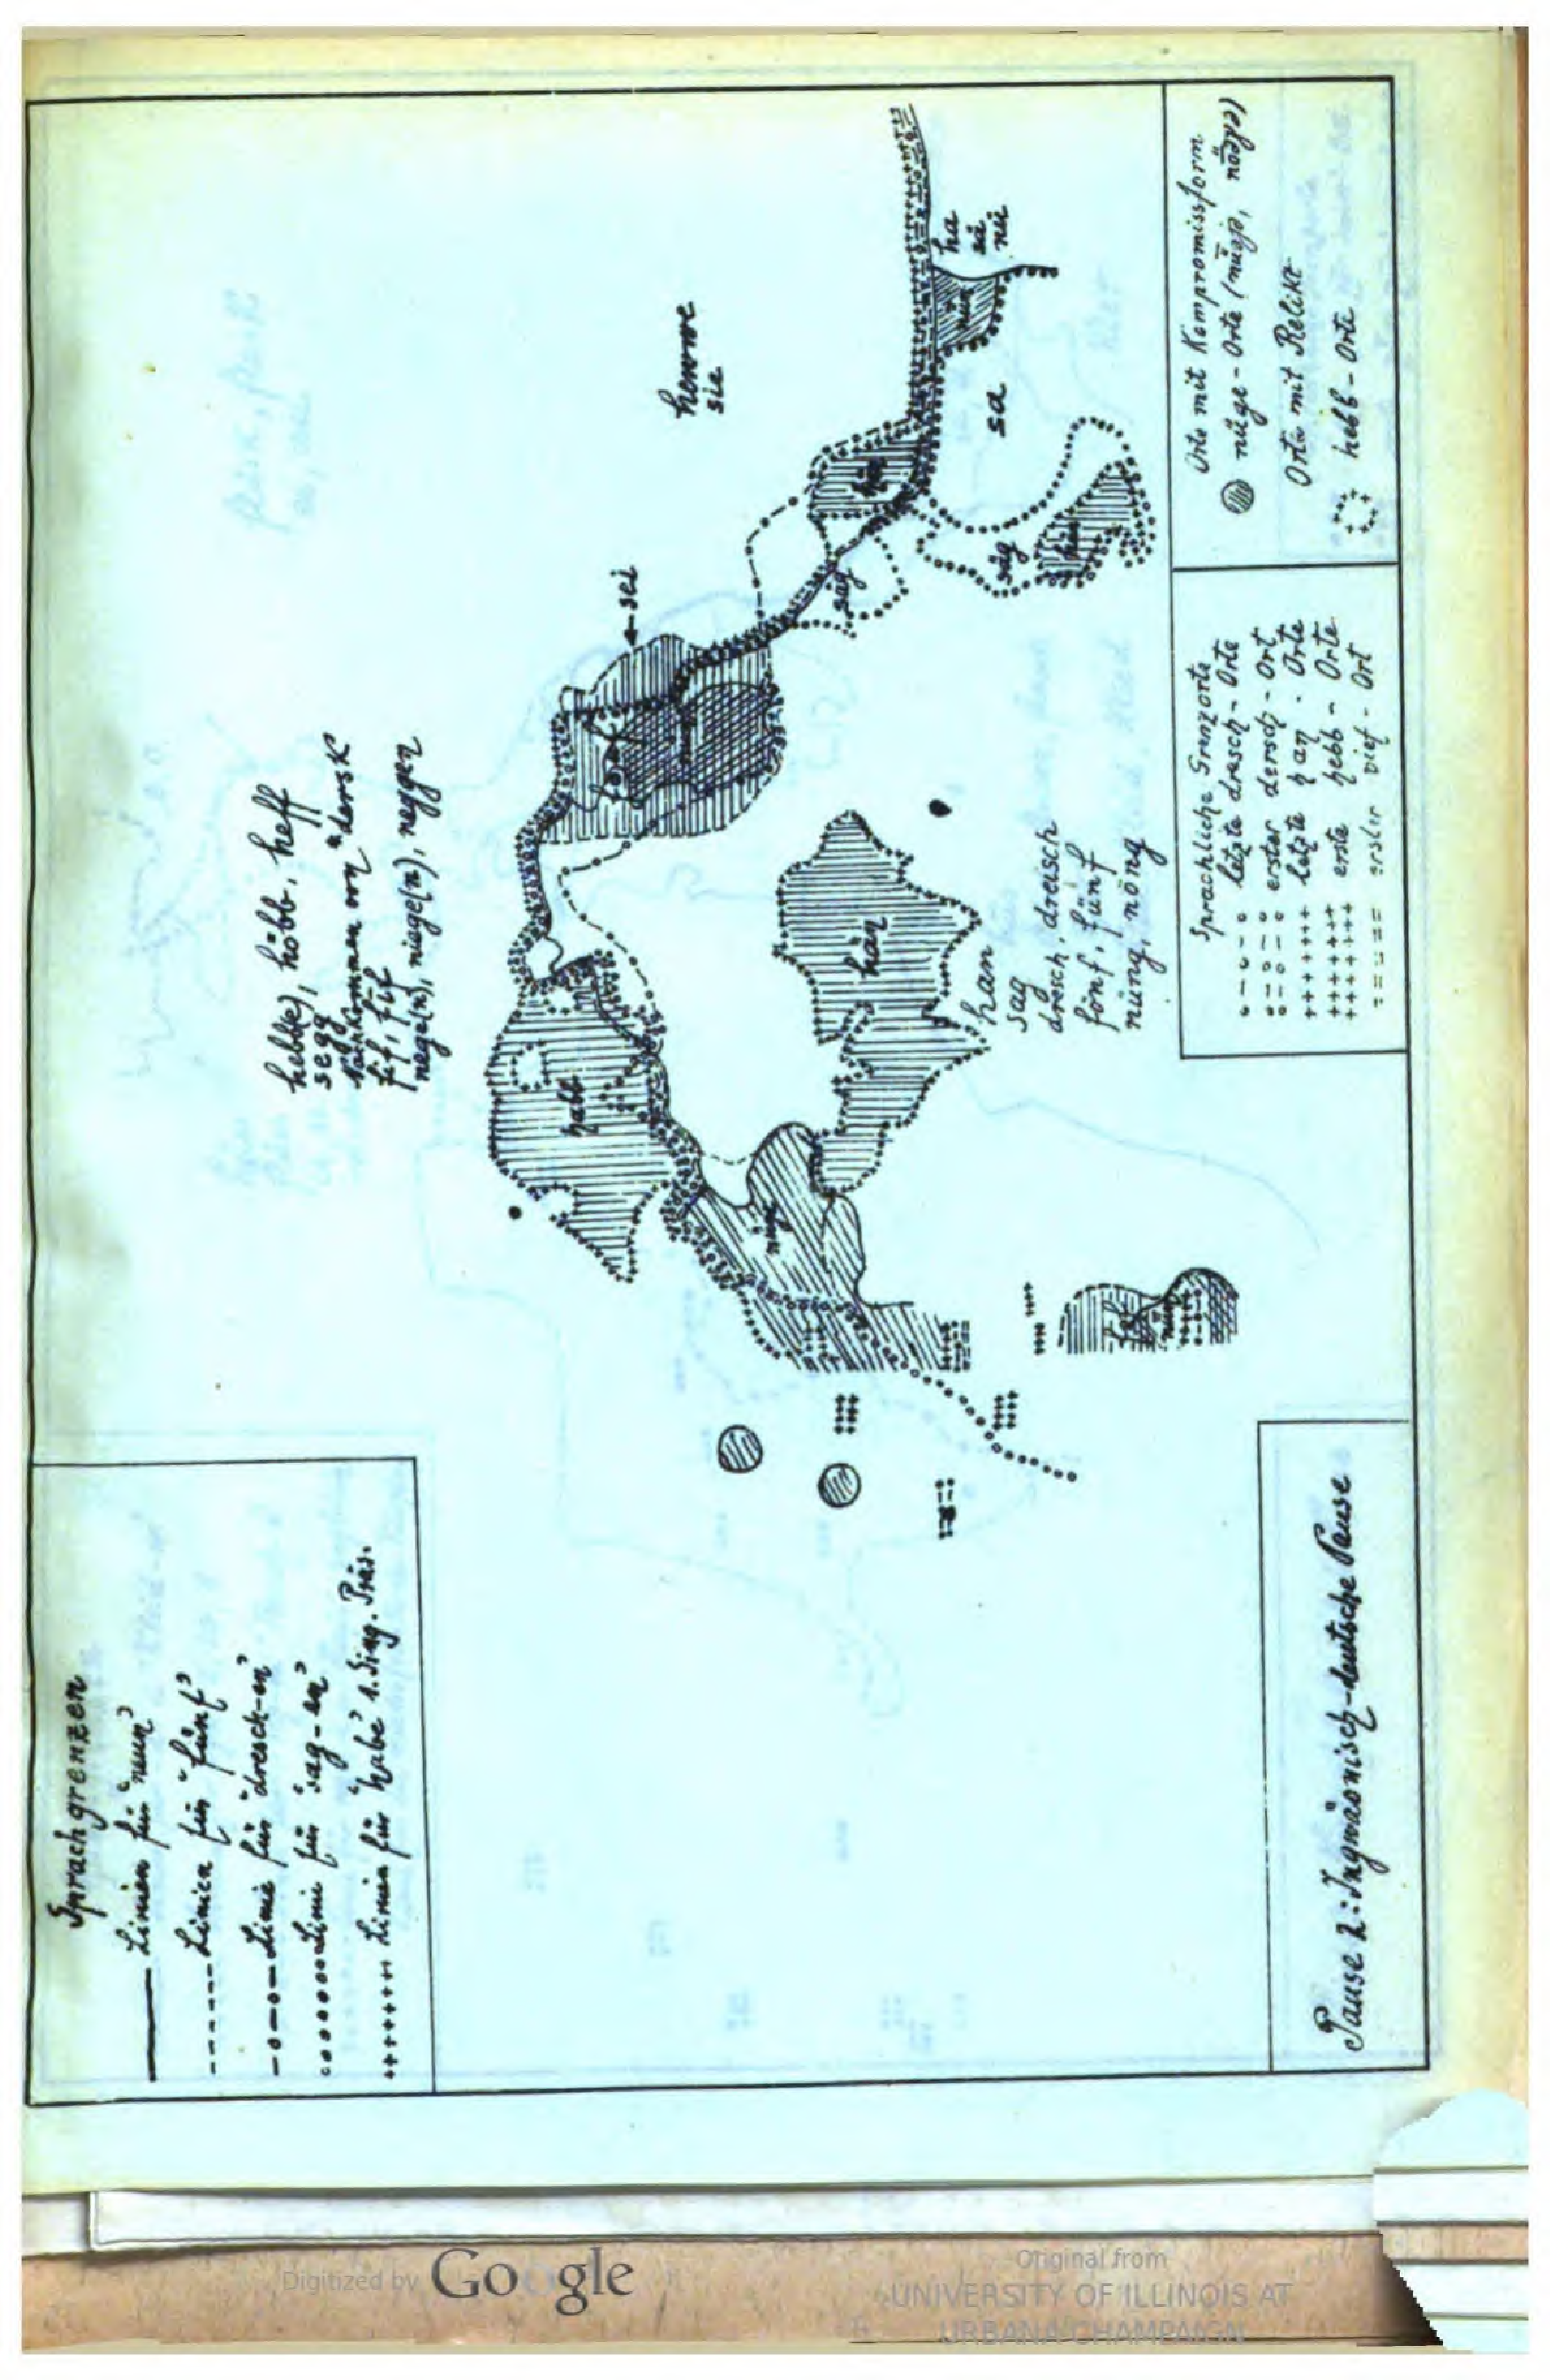 Sprachgrenzen
Linien für "neun"
Linien für "fünf"
Linie für "dresch-en"
Linie für "sag-en"
Linien für "habe" 1. Sing. Präs.
hebb(e), höbb, heff
segg
Nachkommen von "dersk"
fif, füf
nege(n), niege(n), neggen
← sei
hemme
sie
habb
han
sag
sag
sa
ha
sä
nü
han
sag
dresch, dreisch
fönf, fünf
nüng, nöng
Sprachliche Grenzorte
letzte dresch-Orte
erster dersch-Ort
letzte han-Orte
erste hebb-Orte
erster vief-Ort
Orte mit Kompromissform
nüge-Orte
Orte mit Relikt
hebb-Orte
Pause 2: Ingwäonisch-deutsche Pause
Digitized by Google
Original from
UNIVERSITY OF ILLINOIS AT
URBANA-CHAMPAIGN